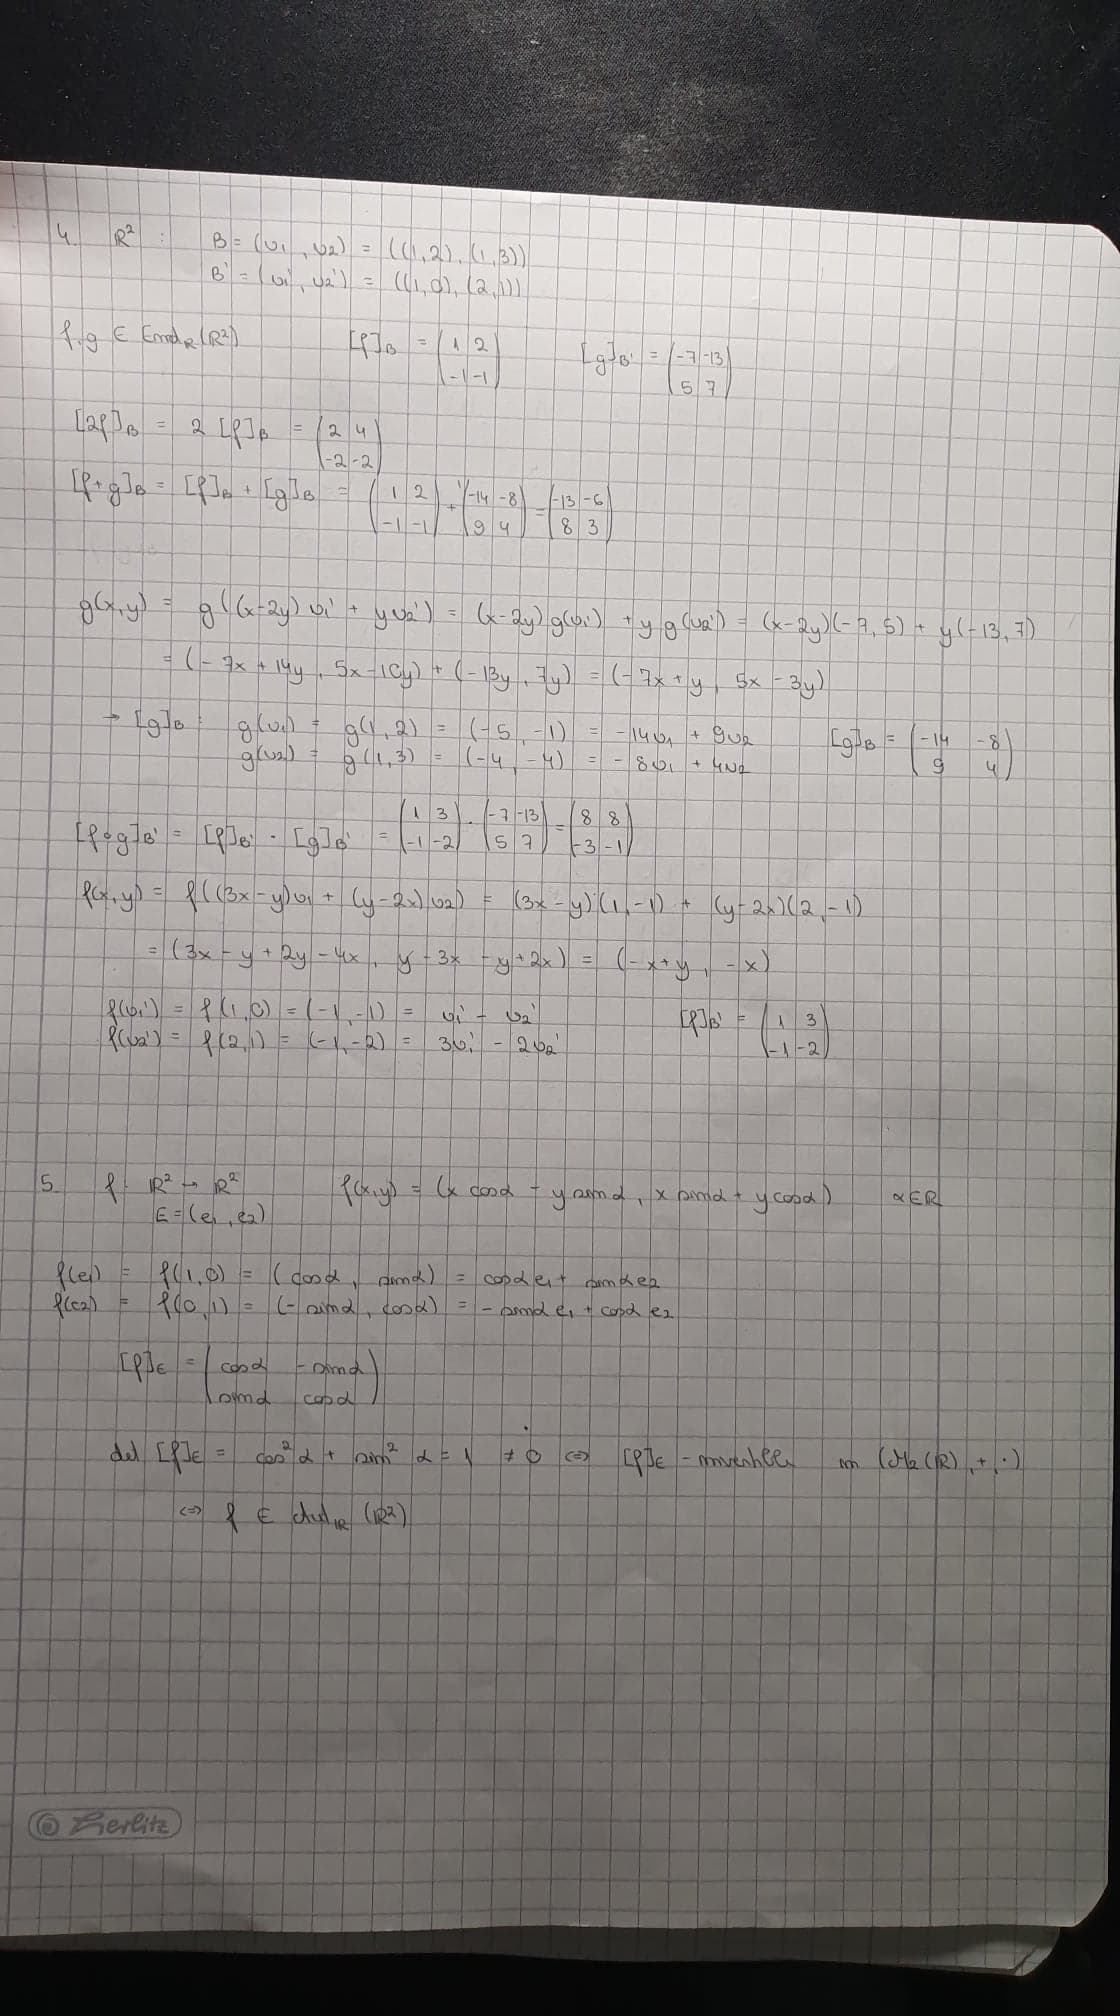 4. R² : B = (v₁, v₂) = ((1,2), (1,3))
B' = (v₁', v₂') = ((1,0), (2,1))
f, g ∈ End_R(R²) [f]_B = (1 2 / -1 -1) [g]_B' = (-7 -13 / 5 7)
[2f]_B = 2 [f]_B = (2 4 / -2 -2)
[f+g]_B = [f]_B + [g]_B = (1 2 / -1 -1) + (-14 -8 / 9 4) = (-13 -6 / 8 3)
g(x,y) = g((x-2y) v₁' + y v₂') = (x-2y) g(v₁') + y g(v₂') = (x-2y)(-7, 5) + y(-13, 7)
= (-7x + 14y, 5x - 10y) + (-13y, 7y) = (-7x + y, 5x - 3y)
→ [g]_B : g(v₁) = g(1, 2) = (-5, -1) = -14v₁ + 9v₂ [g]_B = (-14 -8 / 9 4)
g(v₂) = g(1,3) = (-4, -4) = -8v₁ + 4v₂
[f∘g]_B' = [f]_B' · [g]_B' = (1 3 / -1 -2) · (-7 -13 / 5 7) = (8 8 / -3 -1)
f(x,y) = f((3x-y)v₁ + (y-2x)v₂) = (3x-y)·(1,-1) + (y-2x)(2,-1)
= (3x - y + 2y - 4x, y - 3x - y + 2x) = (-x+y, -x)
f(v₁') = f(1,0) = (-1,-1) = v₁' - v₂' [f]_B' = (1 3 / -1 -2)
f(v₂') = f(2,1) = (-1,-2) = 3v₁' - 2v₂'
5. f: R² → R² f(x,y) = (x cos α - y sin α, x sin α + y cos α) α ∈ R
E = (e₁, e₂)
f(e₁) = f(1,0) = (cos α, sin α) = cos α e₁ + sin α e₂
f(e₂) = f(0,1) = (-sin α, cos α) = -sin α e₁ + cos α e₂
[f]_E = (cos α -sin α / sin α cos α)
det [f]_E = cos² α + sin² α = 1 ≠ 0 ⇔ [f]_E - inversabilă în (M₂(R), +, ·)
⇔ f ∈ Aut_R (R²)
© Herlitz